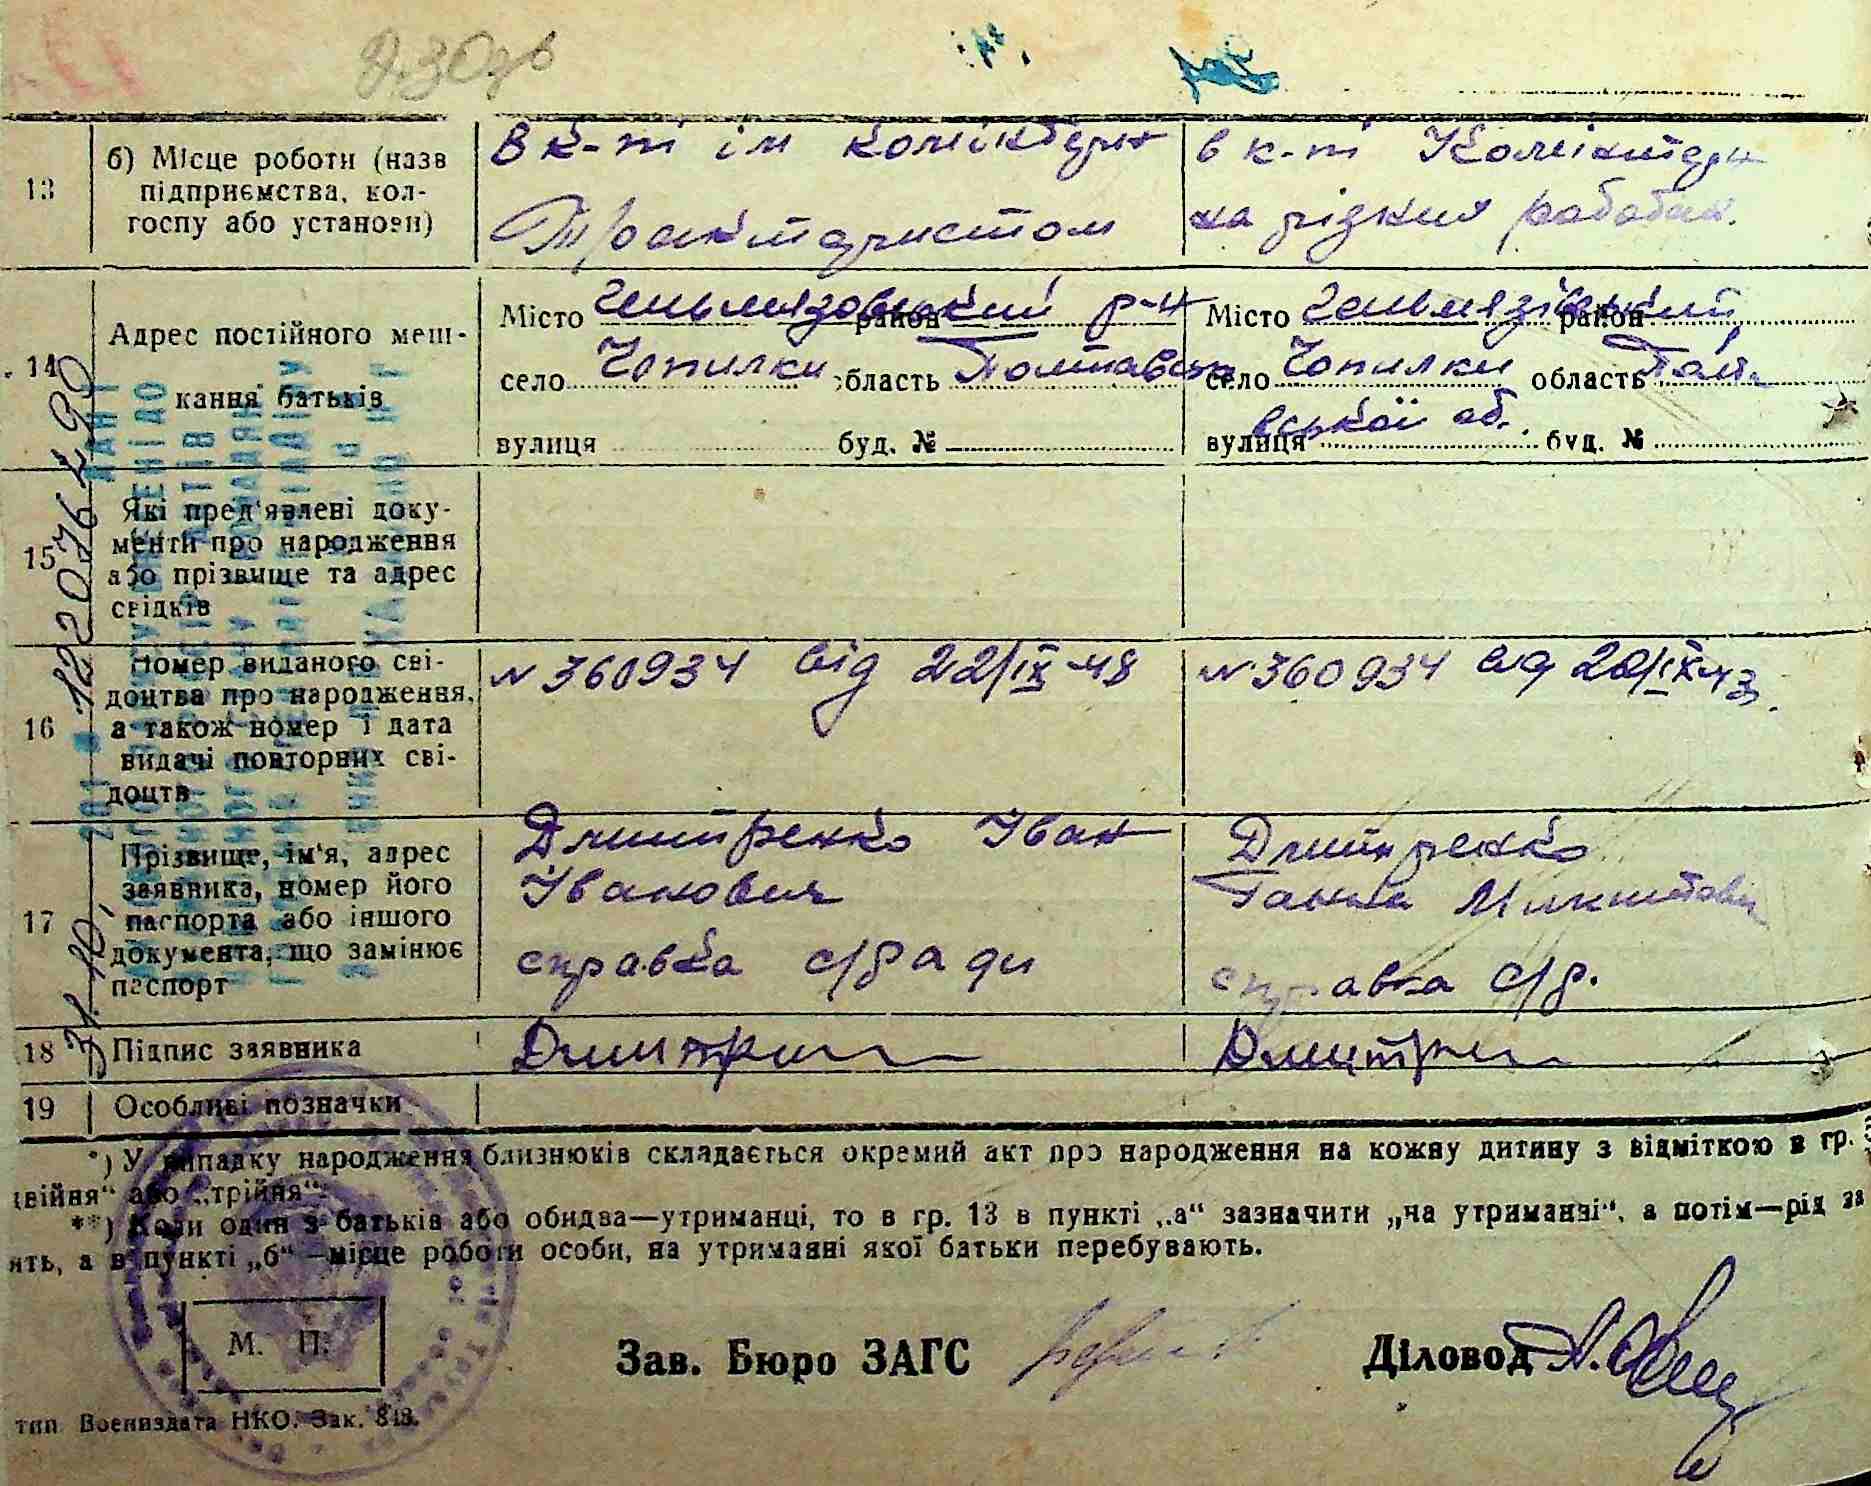 13 б) Місце роботи (назв
підприємства, кол-
госпу або установи)
в к-ті ім комінтерн
Трактористом
в к-ті Комінтерн
на різних роботах.
14 Адрес постійного меш-
кання батьків
Місто Гельмязовський район р-н
село Чопилки область Полтавськ
вулиця буд. №
Місто Гельмязівський район
село Чопилки область Полта
вської об.
вулиця буд. №
15 Які пред'явлені доку-
менти про народження
або прізвище та адрес
свідків
16 Номер виданого сві-
доцтва про народження,
а також номер і дата
видачі повторних сві-
доцтв
N 360934 від 22/IX-48
N 360934 від
17 Прізвище, ім'я, адрес
заявника, номер його
паспорта або іншого
документа, що замінює
паспорт
Дмитренко Іван
Іванович
справка с/ради
Дмитренко
Ганна Микитовн
справка с/р.
18 Підпис заявника
19 Особливі позначки
*) У випадку народження близнюків складається окремий акт про народження на кожну дитину з відміткою в гр.
двійня" або „трійня".
**) Коли один з батьків або обидва—утриманці, то в гр. 13 в пункті „а" зазначити „на утриманні", а потім—рід за
ять, а в пункті „б"—місце роботи особи, на утриманні якої батьки перебувають.
М. П.
Зав. Бюро ЗАГС
Діловод
тип Воениздата НКО. Зак. 843.